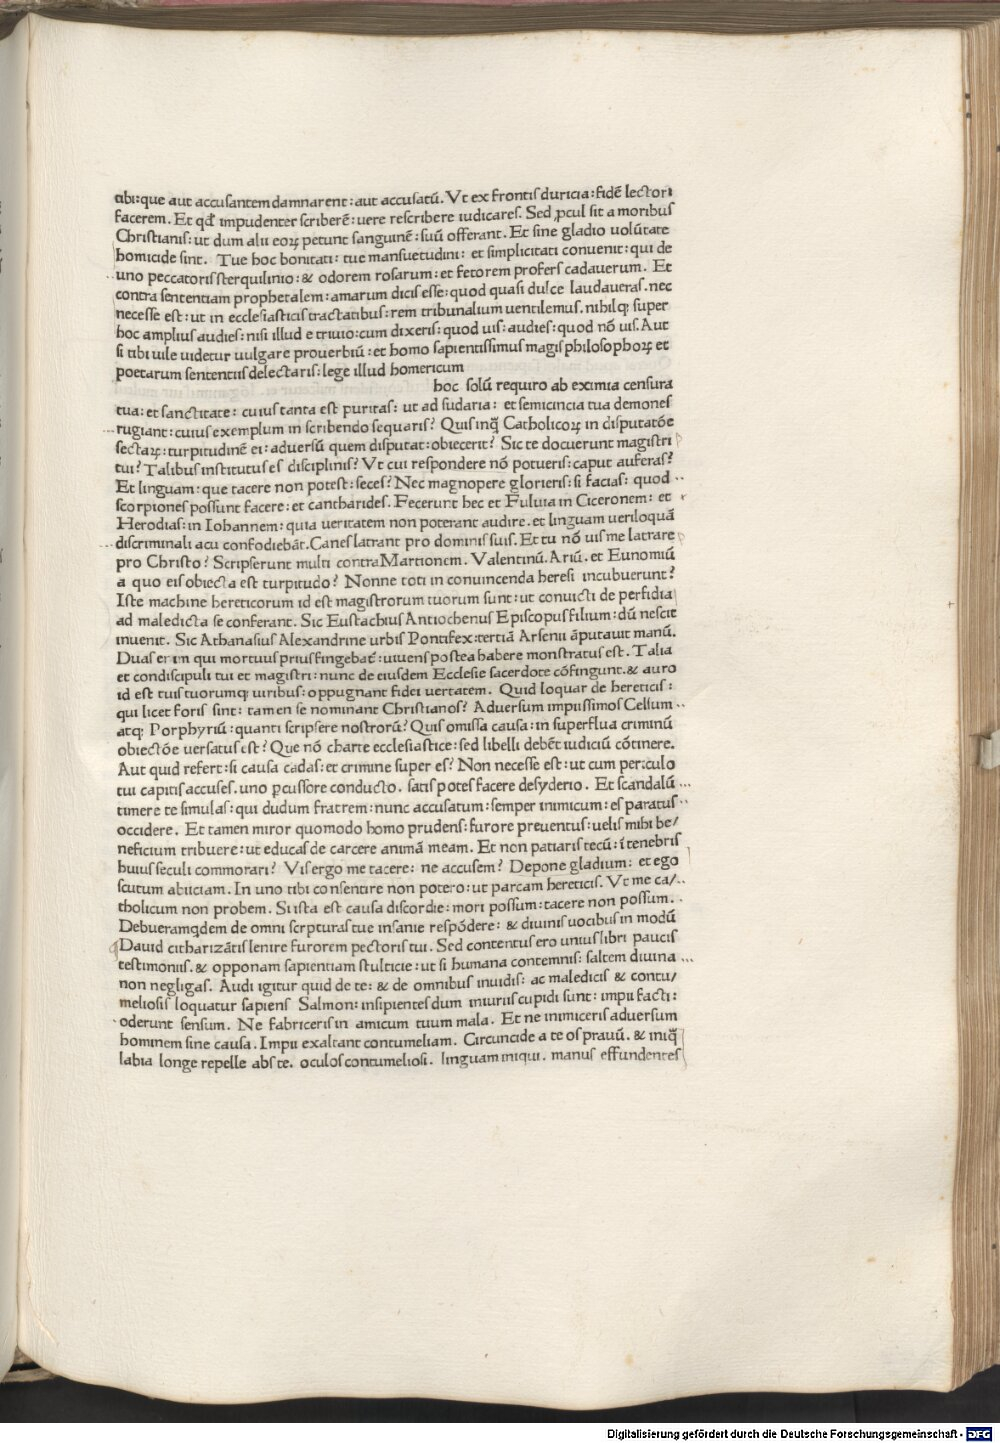 tibi: que aut accusantem damnarent: aut accusatū. Vt ex frontis duricia: fidē lectori
facerem. Et qđ impudenter scriberē: uere rescribere iudicares. Sed ꝓcul sit a moribus
Christianis: ut dum alii eoꝝ petunt sanguinē: suū offerant. Et sine gladio uolūtate
homicide sint. Tue hoc bonitati: tue mansuetudini: et simplicitati conuenit: qui de
uno peccatoris sterquilinio: & odorem rosarum: et fetorem profers cadauerum. Et
contra sententiam prophetalem: amarum dicis esse: quod quasi dulce laudaueras. nec
necesse est: ut in ecclesiasticis tractatibus: rem tribunalium uentilemus. nihilqꝫ super
hoc amplius audies: nisi illud e triuio: cum dixeris: quod uis: audies: quod nō uis. Aut
si tibi uile uidetur uulgare prouerbiū: et homo sapientissimus magis philosophoꝝ et
poetarum sententiis delectaris: lege illud homericum
hoc solū requiro ab eximia censura
tua: et sanctitate: cuius tanta est puritas: ut ad sudaria: et semicincia tua demones
rugiant: cuius exemplum in scribendo sequaris? Quis inq̄ Catholicoꝝ in disputatōe
sectaꝝ: turpitudinē ei: aduersū quem disputat: obiecerit? Sic te docuerunt magistri
tui? Talibus institutus es disciplinis? Vt cui respondere nō potueris: caput auferas?
Et linguam: que tacere non potest: seces? Nec magnopere glorieris: si facias: quod
scorpiones possunt facere: et cantharides. Fecerunt hec et Fuluia in Ciceronem: et
Herodias: in Iohannem: quia ueritatem non poterant audire. et linguam ueriloquā
discriminali acu confodiebāt. Canes latrant pro dominis suis. Et tu nō uis me latrare
pro Christo? Scripserunt multi contra Martionem. Valentinū. Ariū. et Eunomiū
a quo eis obiecta est turpitudo? Nonne toti in conuincenda heresi incubuerunt?
Iste machine hereticorum id est magistrorum tuorum sunt: ut conuicti de perfidia
ad maledicta se conferant. Sic Eustachius Antiochenus Episcopus filium: dū nescit
inuenit. Sic Athanasius Alexandrine urbis Pontifex: tertiā Arsenii āputauit manū.
Duas enim qui mortuus prius fingebat̄: uiuens postea habere monstratus est. Talia
et condiscipuli tui et magistri: nunc de eiusdem Ecclesie sacerdote cōfingunt. & auro
id est tuis tuorumqꝫ uiribus: oppugnant fidei ueritatem. Quid loquar de hereticis:
qui licet foris sint: tamen se nominant Christianos? Aduersum impiissimos Celsum
atqꝫ Porphyriū: quanti scripsere nostrorū? Quis omissa causa: in superflua criminū
obiectōe uersatus est? Que nō charte ecclesiastice: sed libelli debēt iudiciū cōtinere.
Aut quid refert: si causa cadas: et crimine super es? Non necesse est: ut cum periculo
tui capitis accuses. uno pcussore conducto. satis potes facere desyderio. Et scandalū
timere te simulas: qui dudum fratrem: nunc accusatum: semper inimicum: es paratus
occidere. Et tamen miror quomodo homo prudens: furore preuentus: uelis mihi be/
neficium tribuere: ut educas de carcere animā meam. Et non patiaris tecū: ī tenebris
huius seculi commorari? Vis ergo me tacere: ne accusem? Depone gladium: et ego
scutum abiiciam. In uno tibi consentire non potero: ut parcam hereticis. Vt me ca/
tholicum non probem. Si ista est causa discordie: mori possum: tacere non possum.
Debueram qdem de omni scrpturas tue insanie respōdere: & diuinis uocibus in modū
Dauid citharizātis lenire furorem pectoris tui. Sed contentus ero unius libri paucis
testimoniis. & opponam sapientiam stulticie: ut si humana contemnis: saltem diuina
non negligas. Audi igitur quid de te: & de omnibus inuidis: ac maledicis & contu/
meliosis loquatur sapiens Salmon: insipientes dum iniuriis cupidi sunt: impii facti:
oderunt sensum. Ne fabriceris in amicum tuum mala. Et ne inimiceris aduersum
hominem sine causa. Impii exaltant contumeliam. Circuncide a te os prauū. & iniq̄
labia longe repelle abs te. oculos contumeliosi. linguam iniqui. manus effundentes
Digitalisierung gefördert durch die Deutsche Forschungsgemeinschaft - DFG